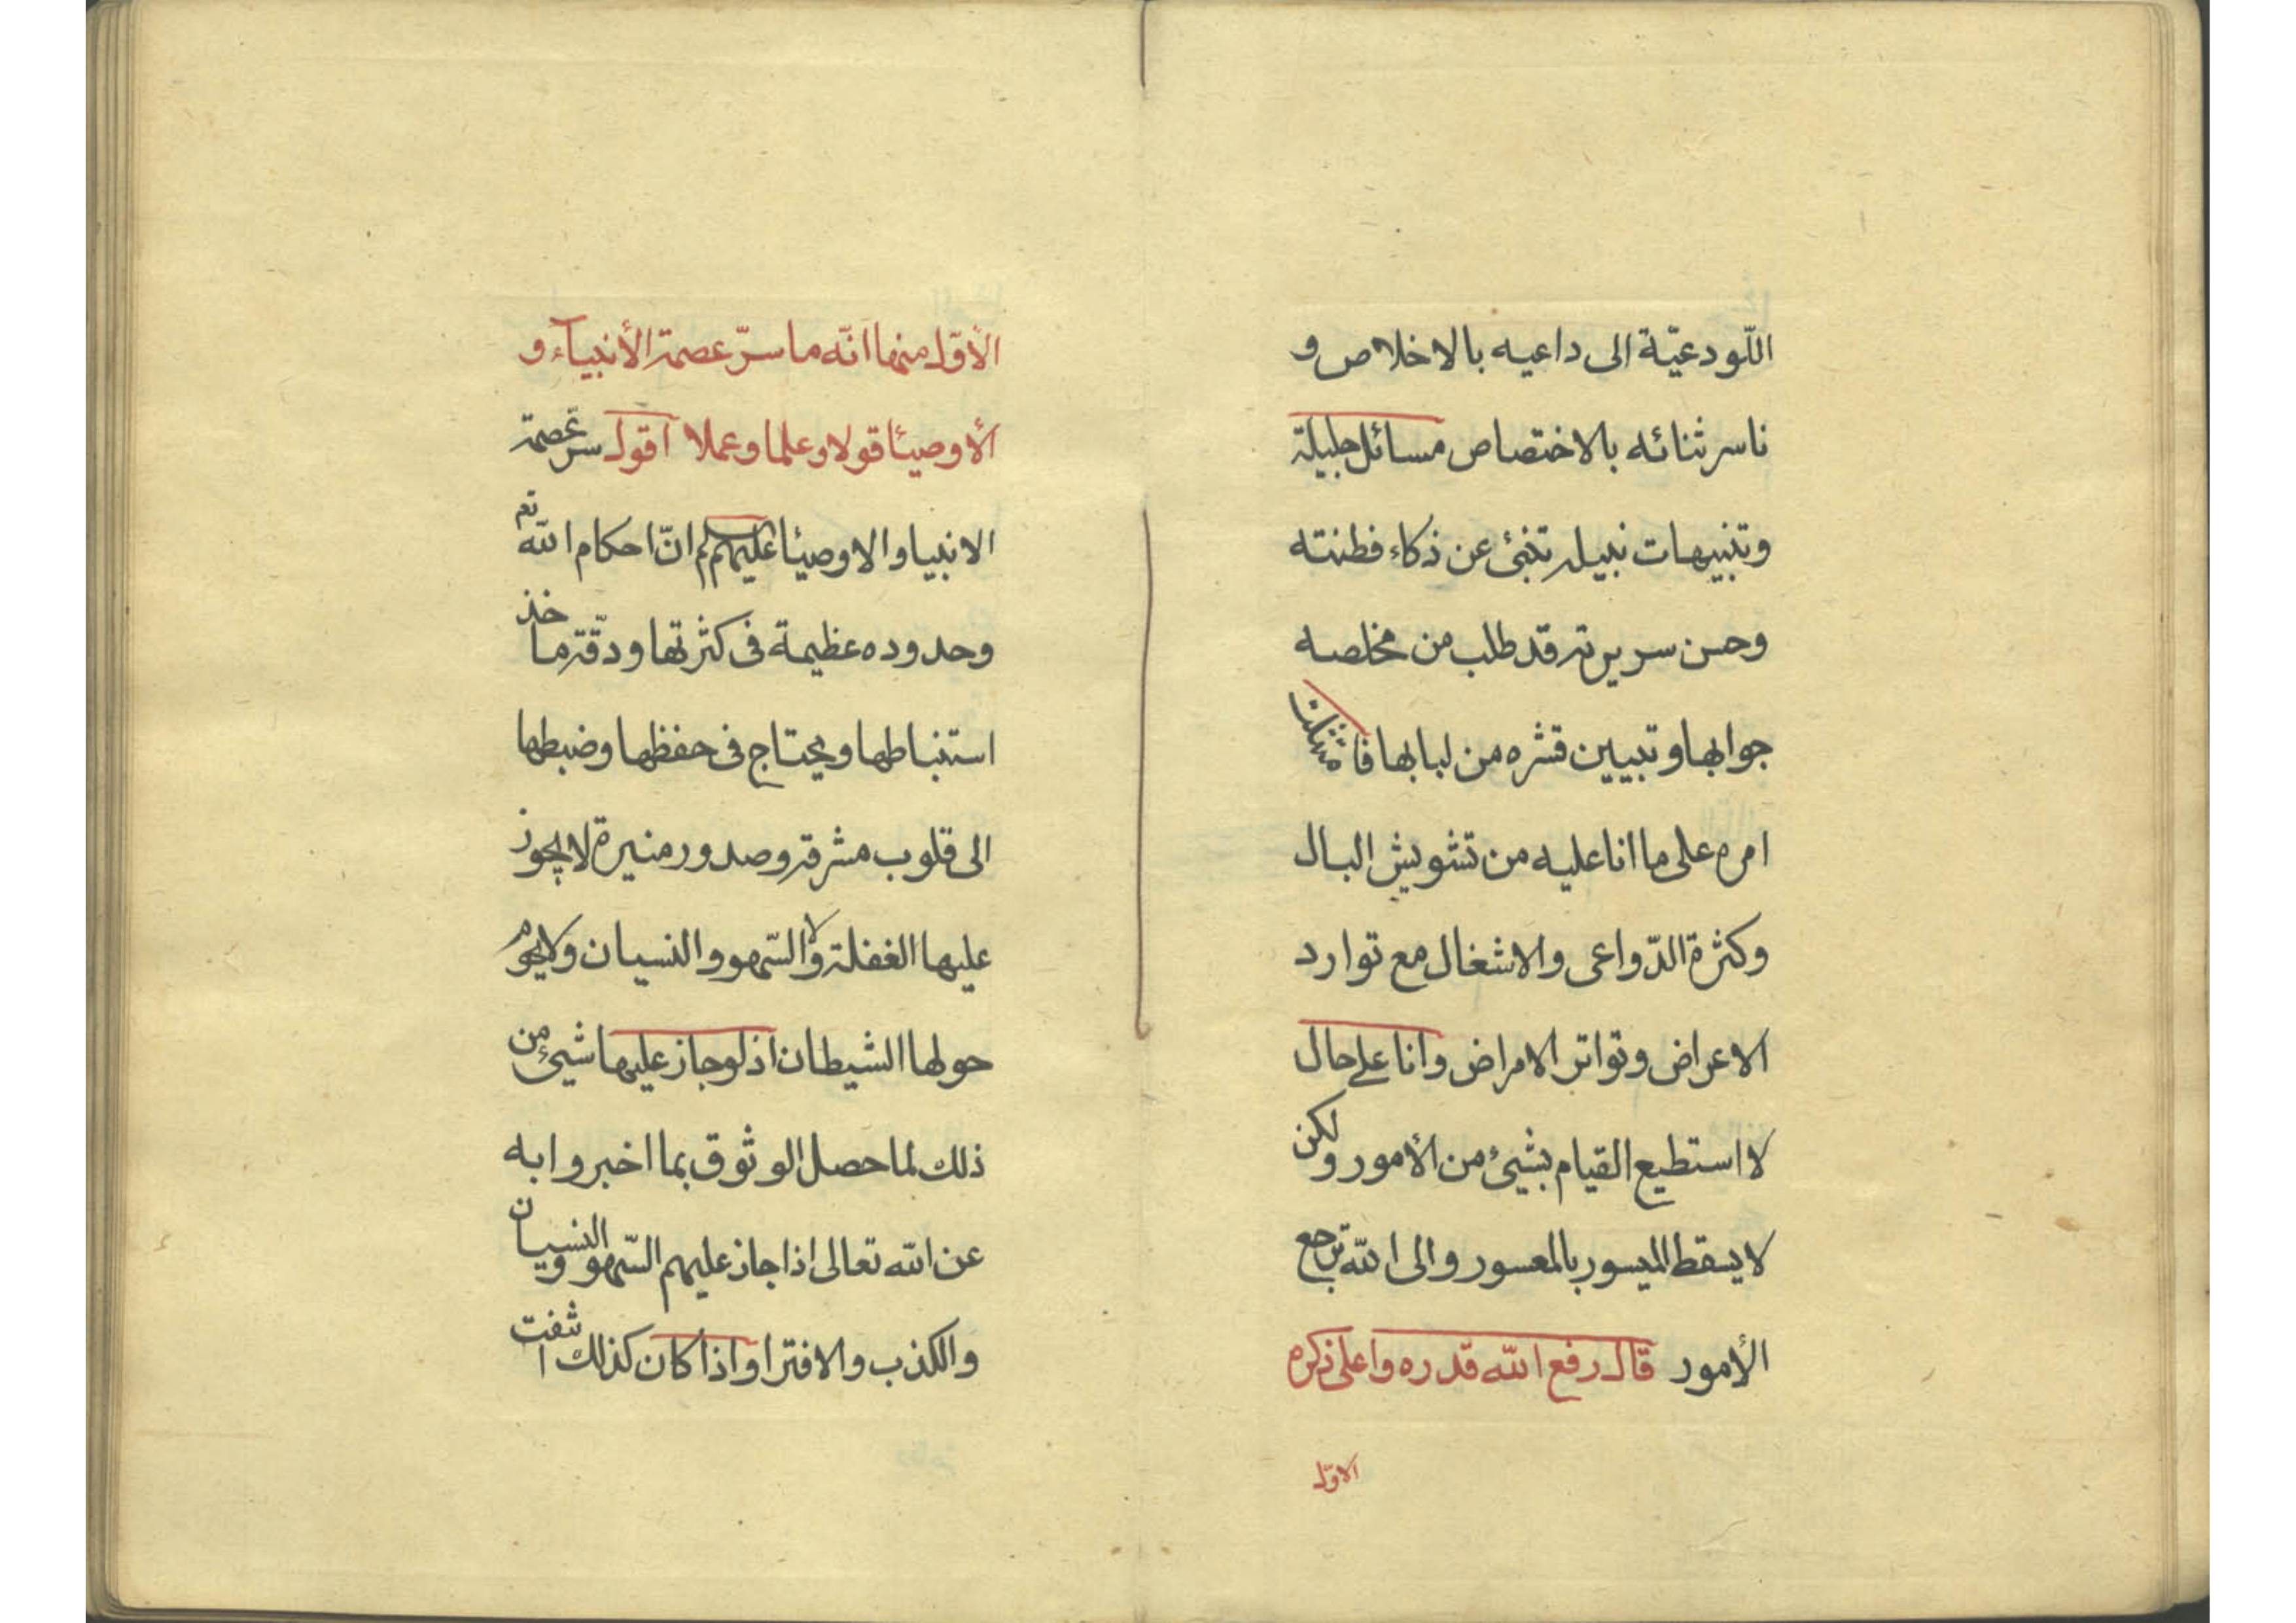 اللّودعيّة الى داعيه بالاخلاص و
ناسر ثنائه بالاختصاص مسائل جليلة
وتنبيهات نبيله تنبئ عن ذكاء فطنته
وحسن سريرته قد طلب من مخلصه
جوابها وتبيين قشره من لبابها فامتثلت
امره على ما انا عليه من تشويش البال
وكثرة الدّواعى والاشغال مع توارد
الاعراض وتواتر الامراض وانا على حال
لا استطيع القيام بشيئ من الأمور ولكن
لا يسقط الميسور بالمعسور والى الله ترجع
الأمور قال رفع الله قدره واعلى ذكره
الاوّل
الأوّل منها انّه ما سرّ عصمة الأنبيآء و
الأوصيئا قولا وعلما وعملا اقول سرّ عصمة
الانبيا والاوصيئا عليهم لم انّ احكام الله تع
وحدوده عظيمة فى كثرتها ودقّة ماخذ
استنباطها ويحتاج فى حفظها وضبطها
الى قلوب مشرقة وصدور منيرة لا يجوز
عليها الغفلة ولا السّهو والنسيان ولا يحوم
حولها الشيطان اذ لو جاز عليها شيئ من
ذلك لما حصل الوثوق بما اخبروا به
عن الله تعالى اذا جاز عليهم السّهو والنسيان
والكذب والافترا واذا كان كذلك انتفت